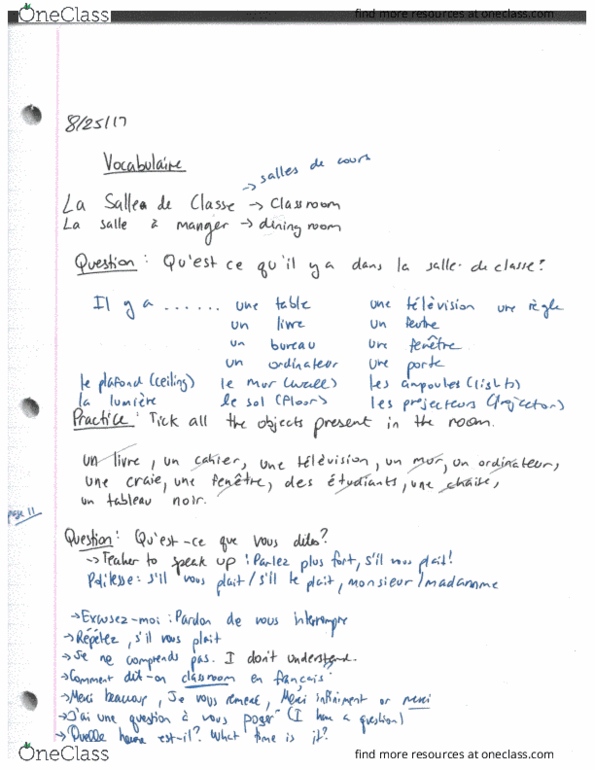 OneClass
find more resources at oneclass.com
8/25/17
Vocabulaire
→ salles de cours
La Salle de Classe → Classroom
La salle à manger → dining room
Question : Qu'est ce qu'il y a dans la salle de classe?
Il y a ...... une table une télévision une règle
un livre un feutre
un bureau une fenêtre
un ordinateur une porte
le plafond (ceiling) le mur (wall) les ampoules (lights)
la lumière le sol (floor) les projecteurs (projectors)
Practice : Tick all the objects present in the room.
un livre, un cahier, une télévision, un mur, un ordinateur,
une craie, une fenêtre, des étudiants, une chaise,
un tableau noir.
page 11
Question : Qu'est-ce que vous dites?
→ Teacher to speak up : Parlez plus fort, s'il vous plait!
Politesse : s'il vous plait / s'il te plait, monsieur / madamme
→ Excusez-moi : Pardon de vous interrompre
→ Répétez, s'il vous plait
→ Je ne comprends pas. I don't understand.
→ Comment dit-on classroom en français
→ Merci beaucoup, Je vous remercie, Merci infiniment or merci
→ J'ai une question à vous poser (I have a question)
→ Quelle heure est-il? What time is it?
OneClass
find more resources at oneclass.com